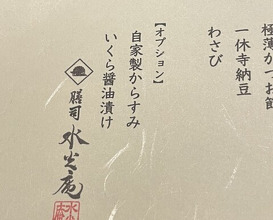 極薄かつお節
一休寺納豆
わさび
【オプション】
自家製からすみ
いくら醤油漬け
膳司 水光庵